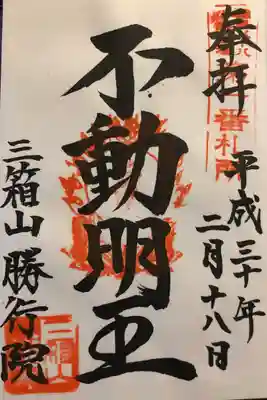 奉拝
平成三十年
二月十八日
不動明王
三箱山 勝行院